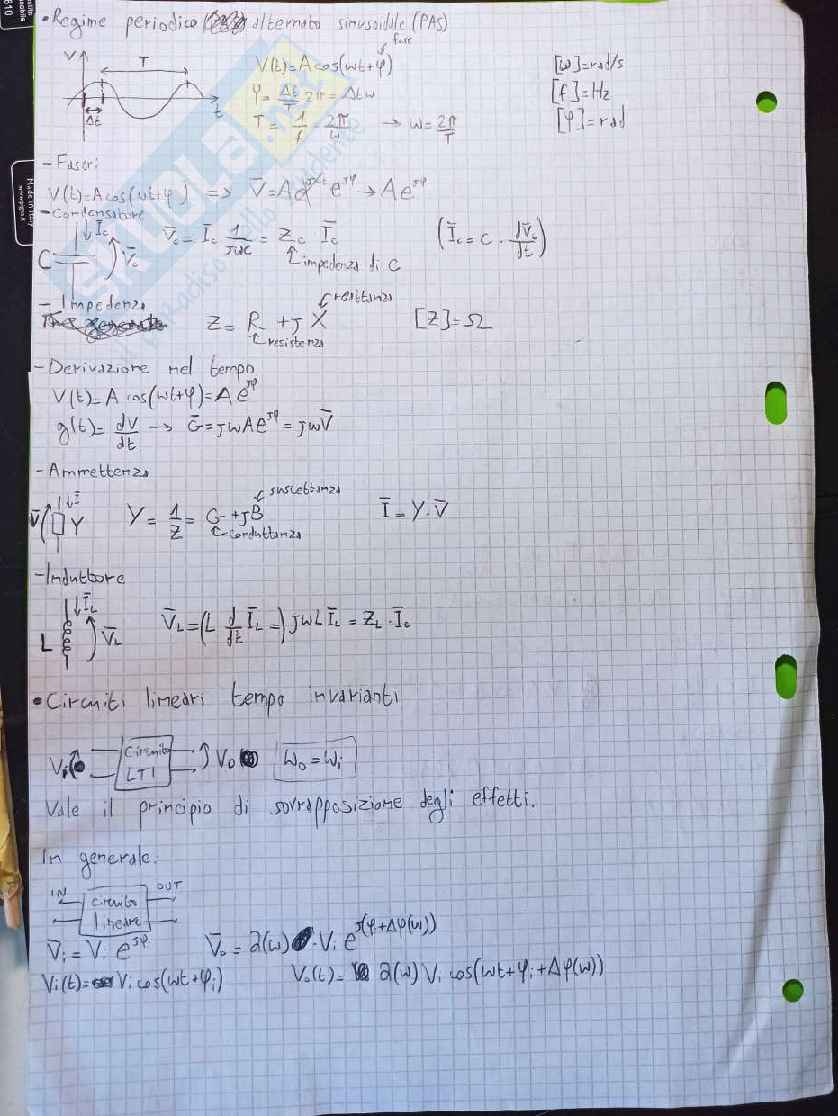 • Regime periodico alternato sinusoidale (PAS)
fase
V T t Δt
V(t)=Acos(ωt+φ)
φ = Δt/T 2π = Δtω
T = 1/f = 2π/ω → ω = 2π/T
[ω]=rad/s
[f]=Hz
[φ]=rad
- Fasori
V(t)=Acos(ωt+φ) => V̅=Ae^jωt e^jφ → Ae^jφ
- Condensatore
C I̅c V̅c
V̅c = I̅c 1/jωc = Zc I̅c
impedenza di C
(I̅c = C · dV̅c/dt)
- Impedenza
Z = R + j X
reattanza
resistenza
[Z]=Ω
- Derivazione nel tempo
V(t)=A cos(ωt+φ)=A e^jφ
g(t)= dV/dt → G̅=jωAe^jφ = jωV̅
- Ammettenza
V̅ I̅ Y
Y = 1/Z = G + jB
suscettanza
conduttanza
I̅ = Y·V̅
- Induttore
L I̅L V̅L
V̅L = (L d/dt I̅L =) jωL I̅L = ZL · I̅c
• Circuiti lineari tempo invarianti
Vi circuito LTI Vo ωo = ωi
Vale il principio di sovrapposizione degli effetti.
In generale:
IN circuito lineare OUT
V̅i = Vi e^jφ V̅o = a(ω) · Vi e^j(φi+Δφ(ω))
Vi(t)= Vi cos(ωt+φi) Vo(t)= a(ω) Vi cos(ωt+φi+Δφ(ω))
SKUOLA.net
Made in Italy